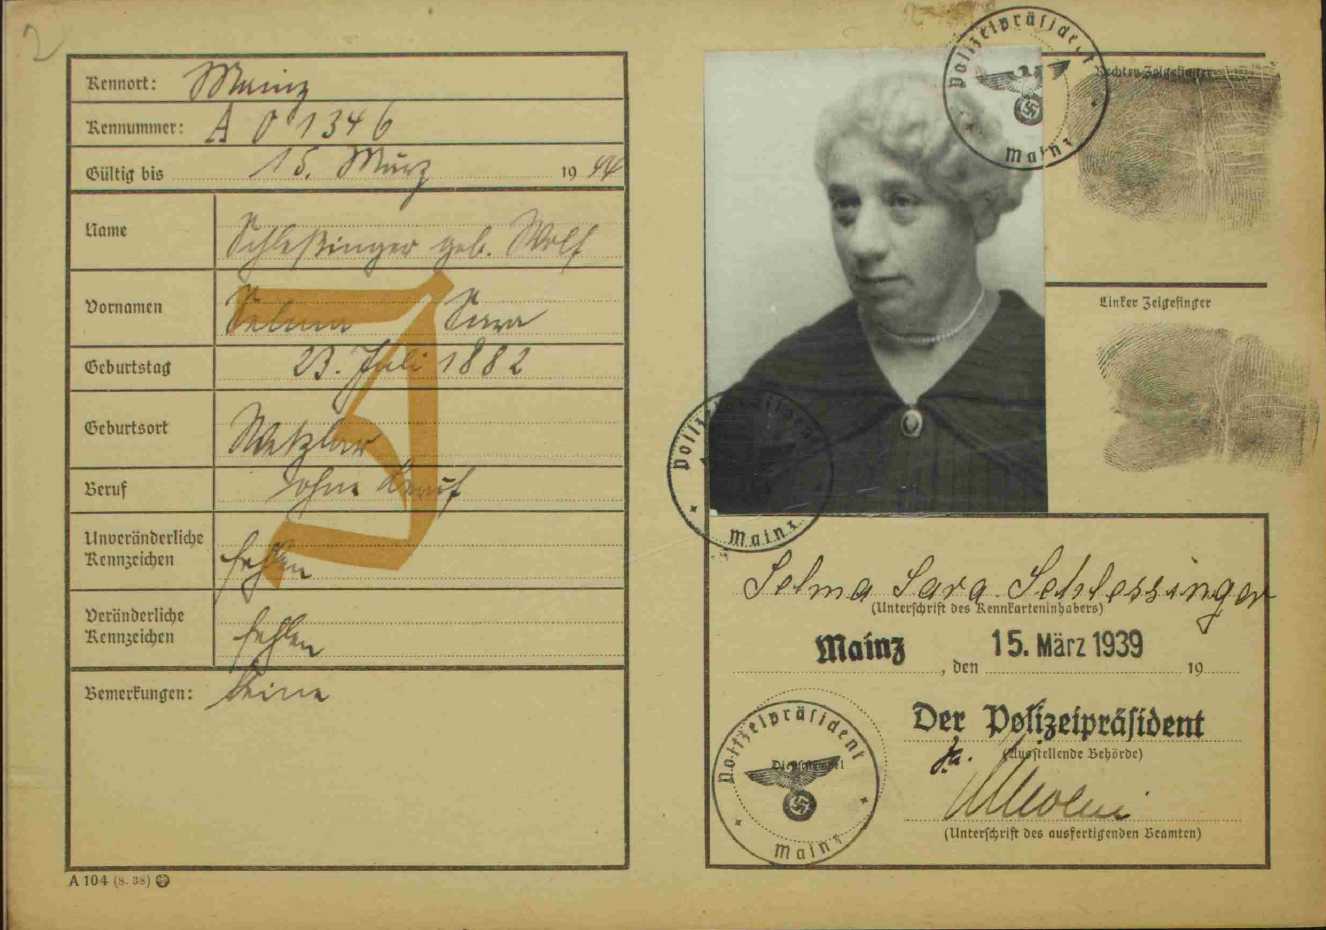 2
Kennort: Mainz
Kennummer: A 01346
Gültig bis 15. März 1944
Name Schleßinger geb. Wolf
Vornamen Selma Sara
Geburtstag 23. Juli 1882
Geburtsort Wetzlar
Beruf ohne Beruf
Unveränderliche
Kennzeichen fehlen
Veränderliche
Kennzeichen fehlen
Bemerkungen: keine
J
A 104 (8. 38)
Polizeipräsident
Mainz
Rechter Zeigefinger
Linker Zeigefinger
Polizeipräsident
Mainz
Selma Sara Schlessinger
(Unterschrift des Kennkarteninhabers)
Mainz, den 15. März 1939 19
Der Polizeipräsident
(Ausstellende Behörde)
(Unterschrift des ausfertigenden Beamten)
Polizeipräsident
Dienststempel
Mainz